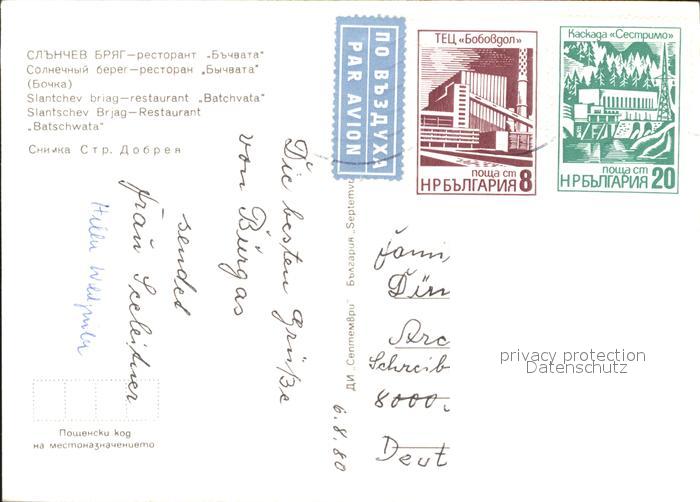 СЛЪНЧЕВ БРЯГ—ресторант „Бъчвата“
Солнечный берег—ресторан „Бычвата“
(Бочка)
Slantchev briag—restaurant „Batchvata“
Slantschev Brjag—Restaurant
„Batschwata“
Снимка Стр. Добрев
ПО ВЪЗДУХ
PAR AVION
ТЕЦ „Бобовдол“
поща ст
НРБЪЛГАРИЯ 8
Каскада „Сестримо“
поща ст
НРБЪЛГАРИЯ 20
Die besten Grüße
von Burgas
sendet
Frau Seeleitner
ДИ „Септември“ България „Septemvri
6.8.80
Fami
Arc
Schreib
8000
Deut
privacy protection
Datenschutz
Пощенски код
на местоназначението